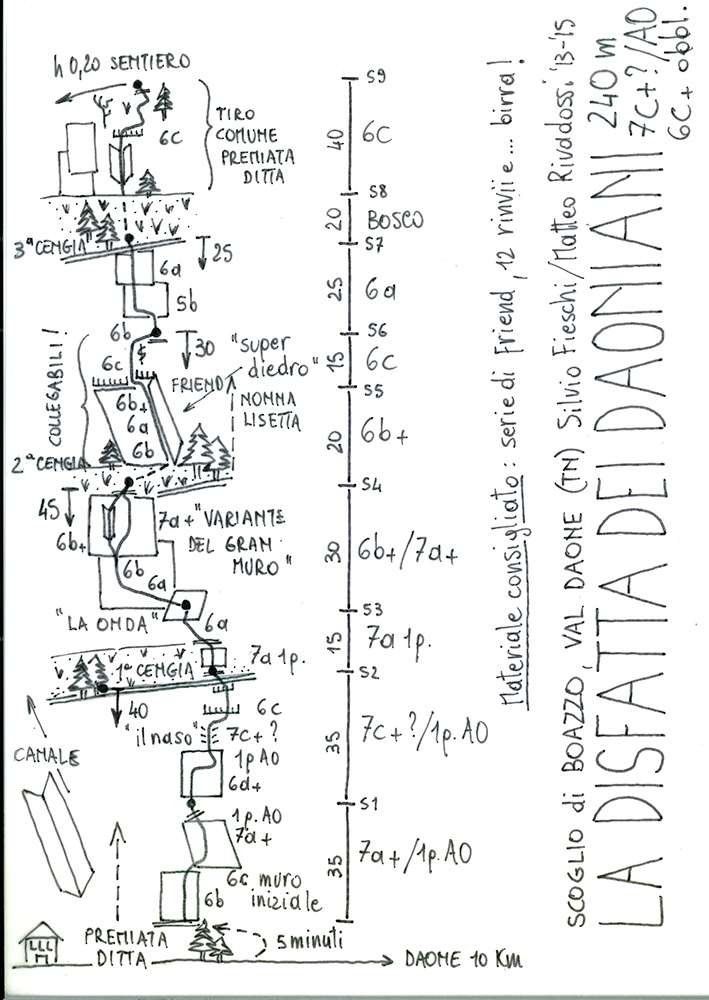 h 0,20 SENTIERO
6c
TIRO
COMUNE
PREMIATA
DITTA
3ª CENGIA
25
6a
5b
6b
30
"super
diedro"
COLLEGABILI!
6c
FRIEND
6b+
6a
6b
NONNA
LISETTA
2ª CENGIA
45
6b+
7a+ "VARIANTE
DEL GRAN
MURO"
6b
6a
"LA ONDA"
6a
1ª CENGIA
7a 1p.
40
6c
"il naso"
7c+?
1p A0
6a+
CANALE
1p. A0
7a+
6c muro
iniziale
6b
PREMIATA
DITTA
5 minuti
DAONE 10 Km
S9
40
6c
S8
20
BOSCO
S7
25
6a
S6
15
6c
S5
20
6b+
S4
30
6b+/7a+
S3
15
7a 1p.
S2
35
7c+?/1p. A0
S1
35
7a+/1p. A0
Materiale consigliato: serie di friend, 12 rinvii e... birra!
SCOGLIO di BOAZZO, VAL DAONE (TN) Silvio Fieschi/Matteo Rivadossi '13-'15
LA DISFATTA DEI DAONIANI
240 m
7c+?/A0
6c+ obbl.